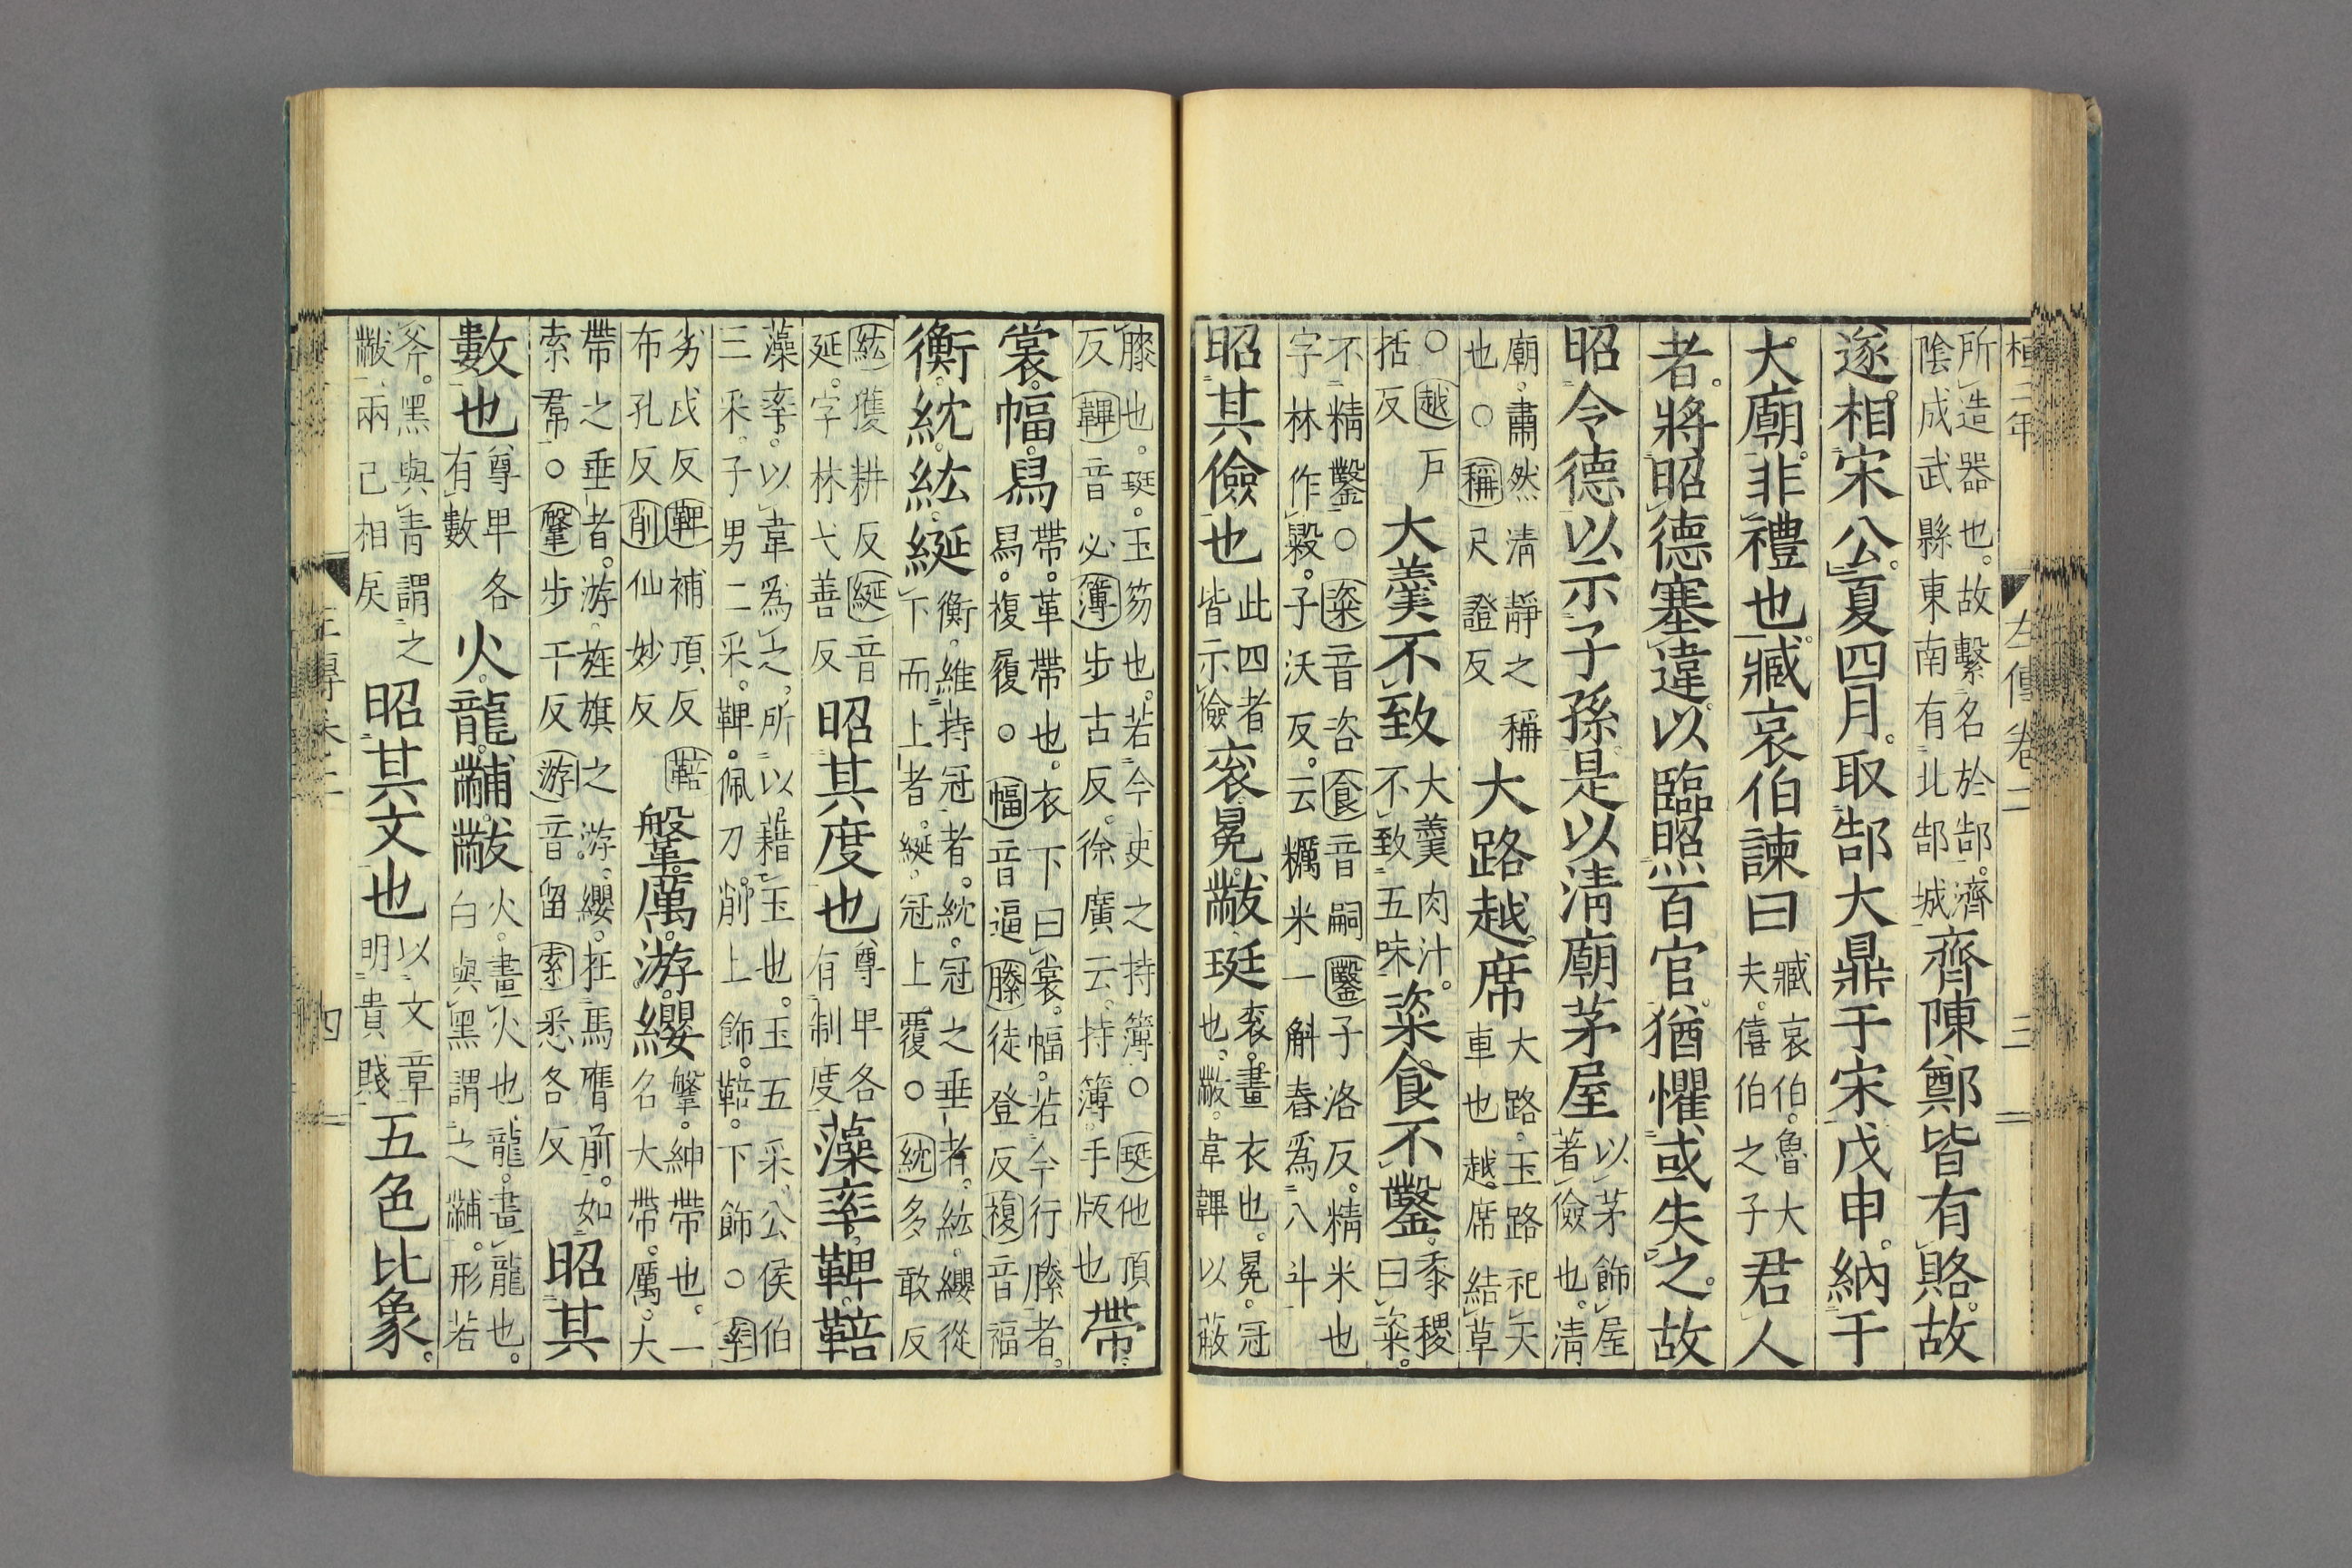 桓二年 左傳卷二 三
所造器也。故繫名於郜。濟陰成武縣東南有北郜城 齊陳鄭皆有賂。故
遂相宋公。夏四月。取郜大鼎于宋戊申。納于
大廟。非禮也。臧哀伯諫曰 臧哀伯。魯大夫。僖伯之子 君人
者。將昭德塞違。以臨照百官。猶懼或失之。故
昭令德以示子孫。是以清廟茅屋 以茅飾屋著儉也。清
廟。肅然清靜之稱也○稱尺證反 大路越席 大路。玉路祀天車也越。席結草
○越戶括反 大羹不致 大羹肉汁。不致五味 粢食不鑿。 黍稷曰粢。
不精鑿○粢音咨食音嗣鑿子洛反。精米也字林作毇。子沃反。云糲米一斛舂爲八斗
昭其儉也 此四者皆示儉 袞冕黻珽 袞。畫衣也。冕。冠也。黻。韋韠以蔽
膝也。珽。玉笏也。若今吏之持簿○珽他頂反韠音必簿步古反。徐廣云。持簿。手版也 帶
裳。幅。舄 帶。革帶也。衣下曰裳。幅。若今行縢者。舄。複履○幅音逼縢徒登反複音福
衡。紞。紘。綖 衡。維持冠者。紞。冠之垂者。紘。纓從下而上者。綖。冠上覆○紞多敢反
紘獲耕反綖音延。字林弋善反 昭其度也 尊卑各有制度 藻率。鞞。鞛
藻率。以韋爲之。所以藉玉也。玉五采。公侯伯三采。子男二采。鞞。佩刀。削上飾。鞛。下飾○率
劣戌反鞞補頂反鞛布孔反削仙妙反 鞶。厲。游。纓 鞶。紳帶也。一名大帶。厲。大
帶之垂者。游。旌旗之游。纓。在馬膺前。如索帬○鞶步干反游音留索悉各反 昭其
數也 尊卑各有數 火。龍。黼。黻 火。畫火也。龍。畫龍也。白與黑謂之黼。形若
斧。黑與青謂之黻。兩己相戾 昭其文也 以文章明貴賤 五色比象。
四